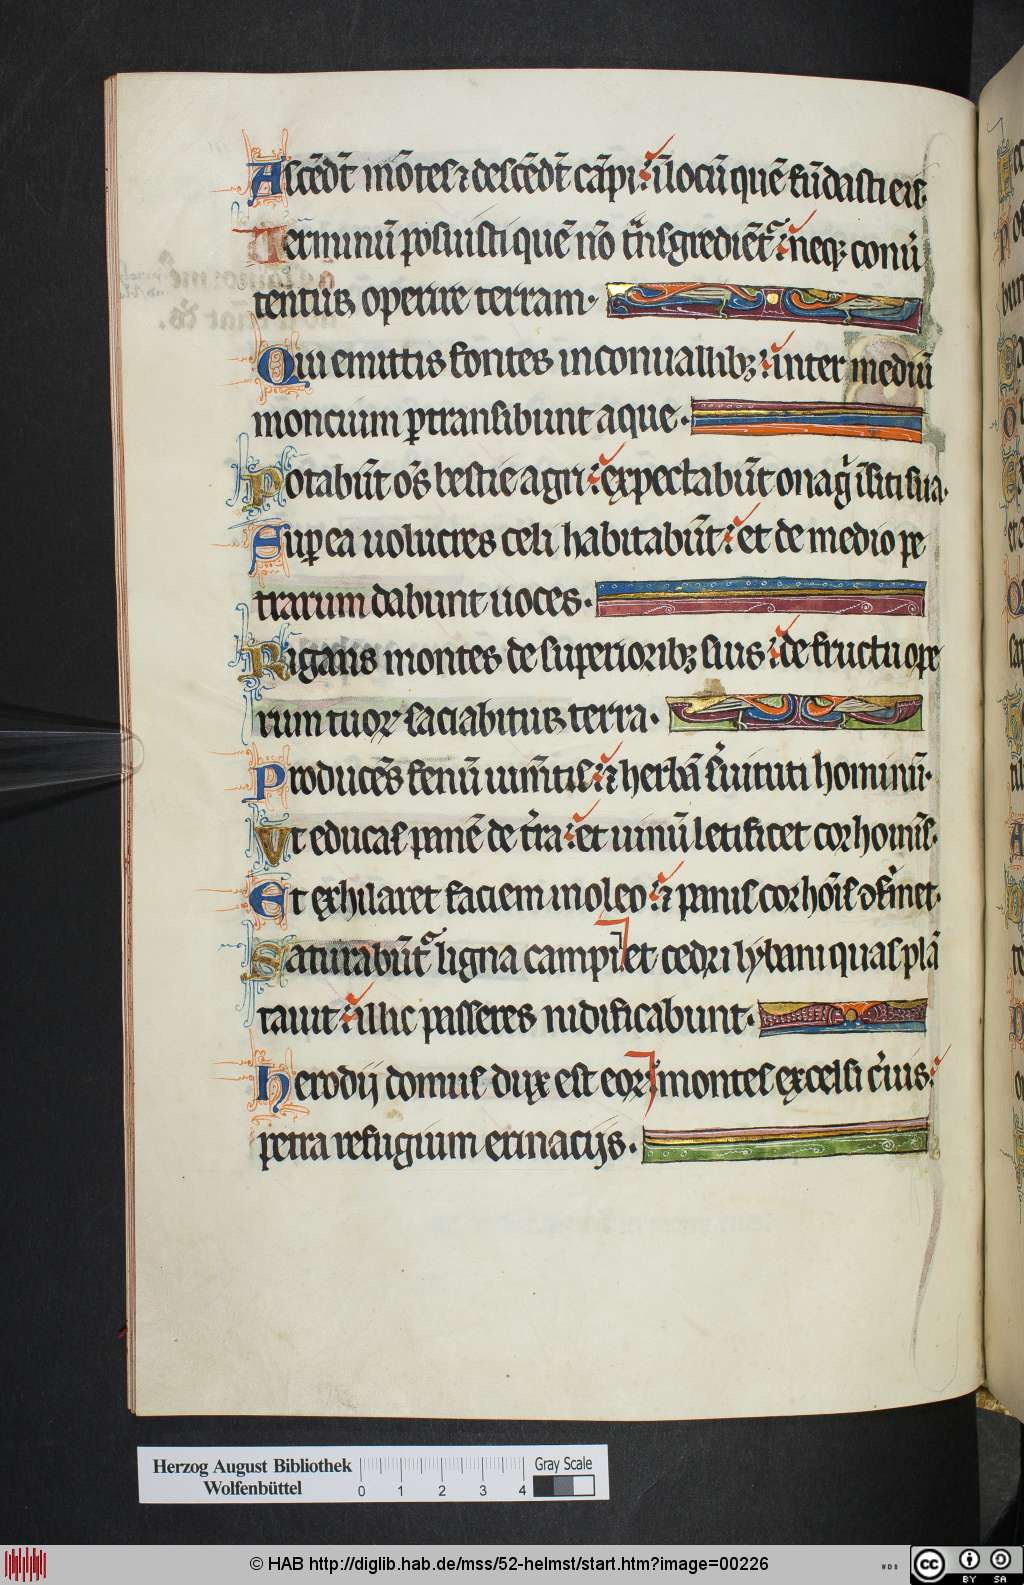 Ascēdt̄ mōtes ⁊ descēdt̄ cāpi: ī locū quē fūdasti eis.
Terminū posuisti quē nō trͣnsgrediēt᷑: neqꝫ conu̾
tentur operire terram.
Qui emittis fontes in conuallibꝫ: inter mediū
montium ꝑtransibunt aque.
Potabūt om̄s bestie agri: expectabūt onagͥ ī siti sua.
Suꝑ ea uolucres celi habitabūt: et de medio pe
trarum dabunt uoces.
Rigans montes de superioribꝫ suis: de fructu ope
rum tuoꝝ saciabitur terra.
Producēs fenū iumͣtis: ⁊ herbā s̾uituti hominū.
Ut educas panē de t̾ra: et uinū letificet cor homīs.
Et exhilaret faciem in oleo: ⁊ panis cor hoīs ↄfͥmet.
Saturabūt᷑ ligna campi et cedri lybani quas plā
tauit: illic passeres nidificabunt.
Herodij domus dux est eoꝝ montes excelsi c̾uis:
petra refugium erinacijs.
Herzog August Bibliothek
Wolfenbüttel
0 1 2 3 4
Gray Scale
© HAB http://diglib.hab.de/mss/52-helmst/start.htm?image=00226
cc BY SA